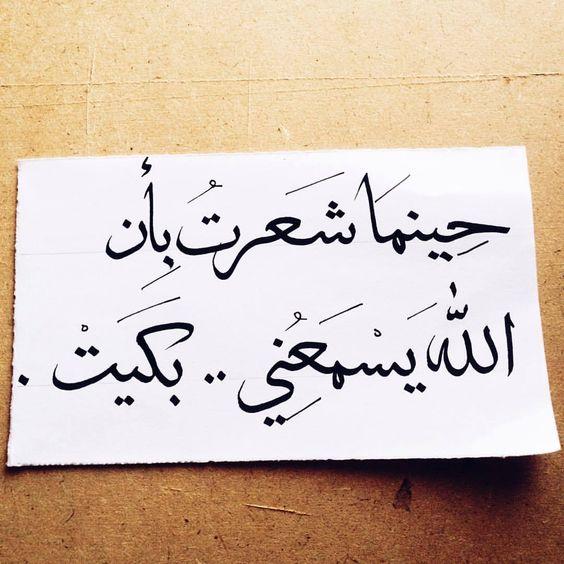 حِينمَا شَعَرتُ بِأن
اللّٰه يَسْمَعُنِي .. بَكَيَتْ .